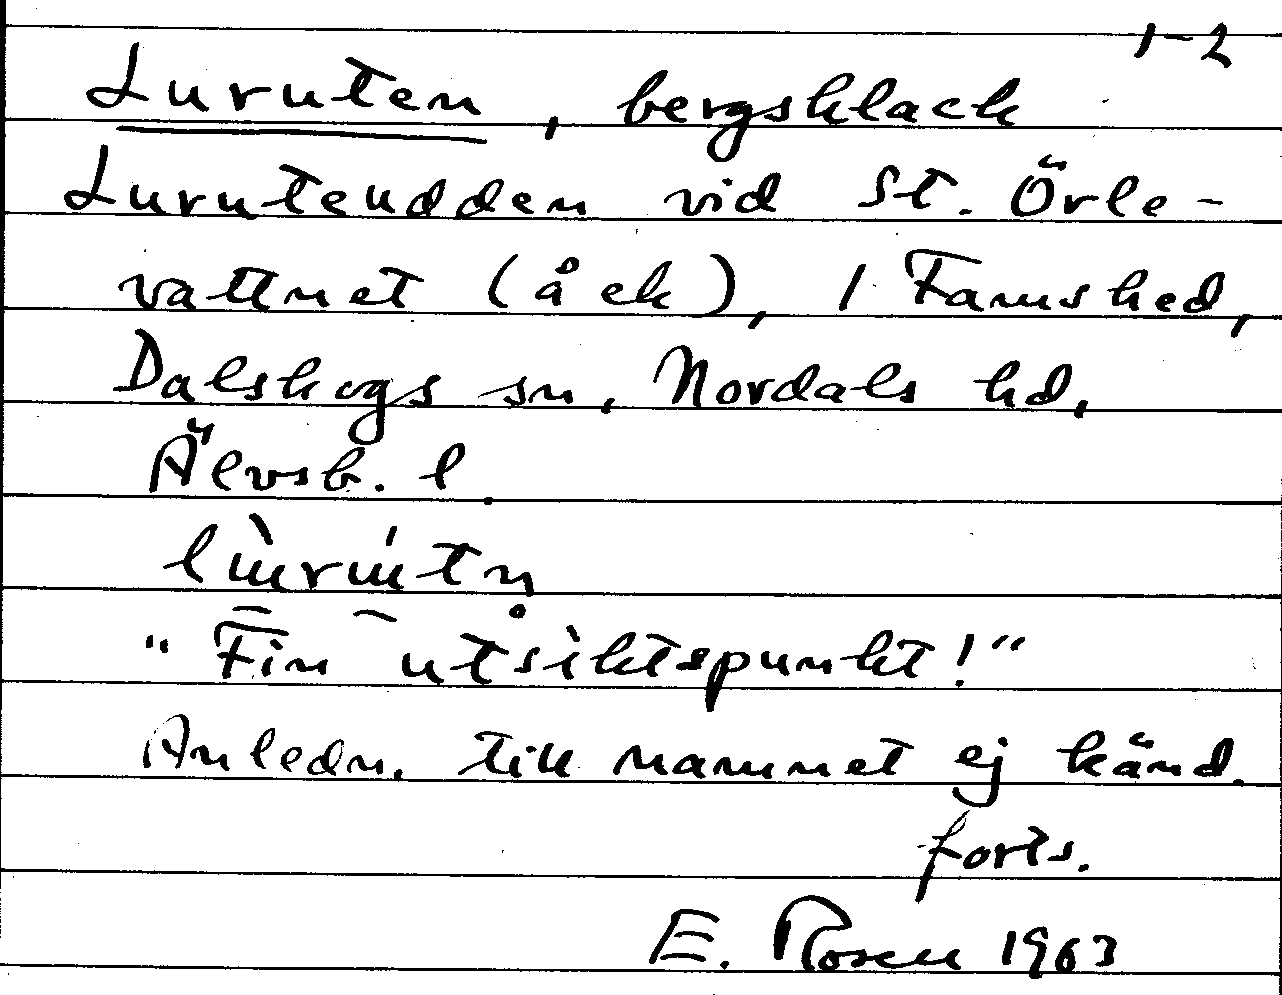 1-2
Luruten, bergsklack
Lurutenudden vid St. Örle-
vattnet (åck), / Famshed,
Dalskogs sn, Nordals hd,
Älvsb. l.
"Fin utsiktspunkt!"
Anledn. till namnet ej känd.
forts.
E. Rosen 1963